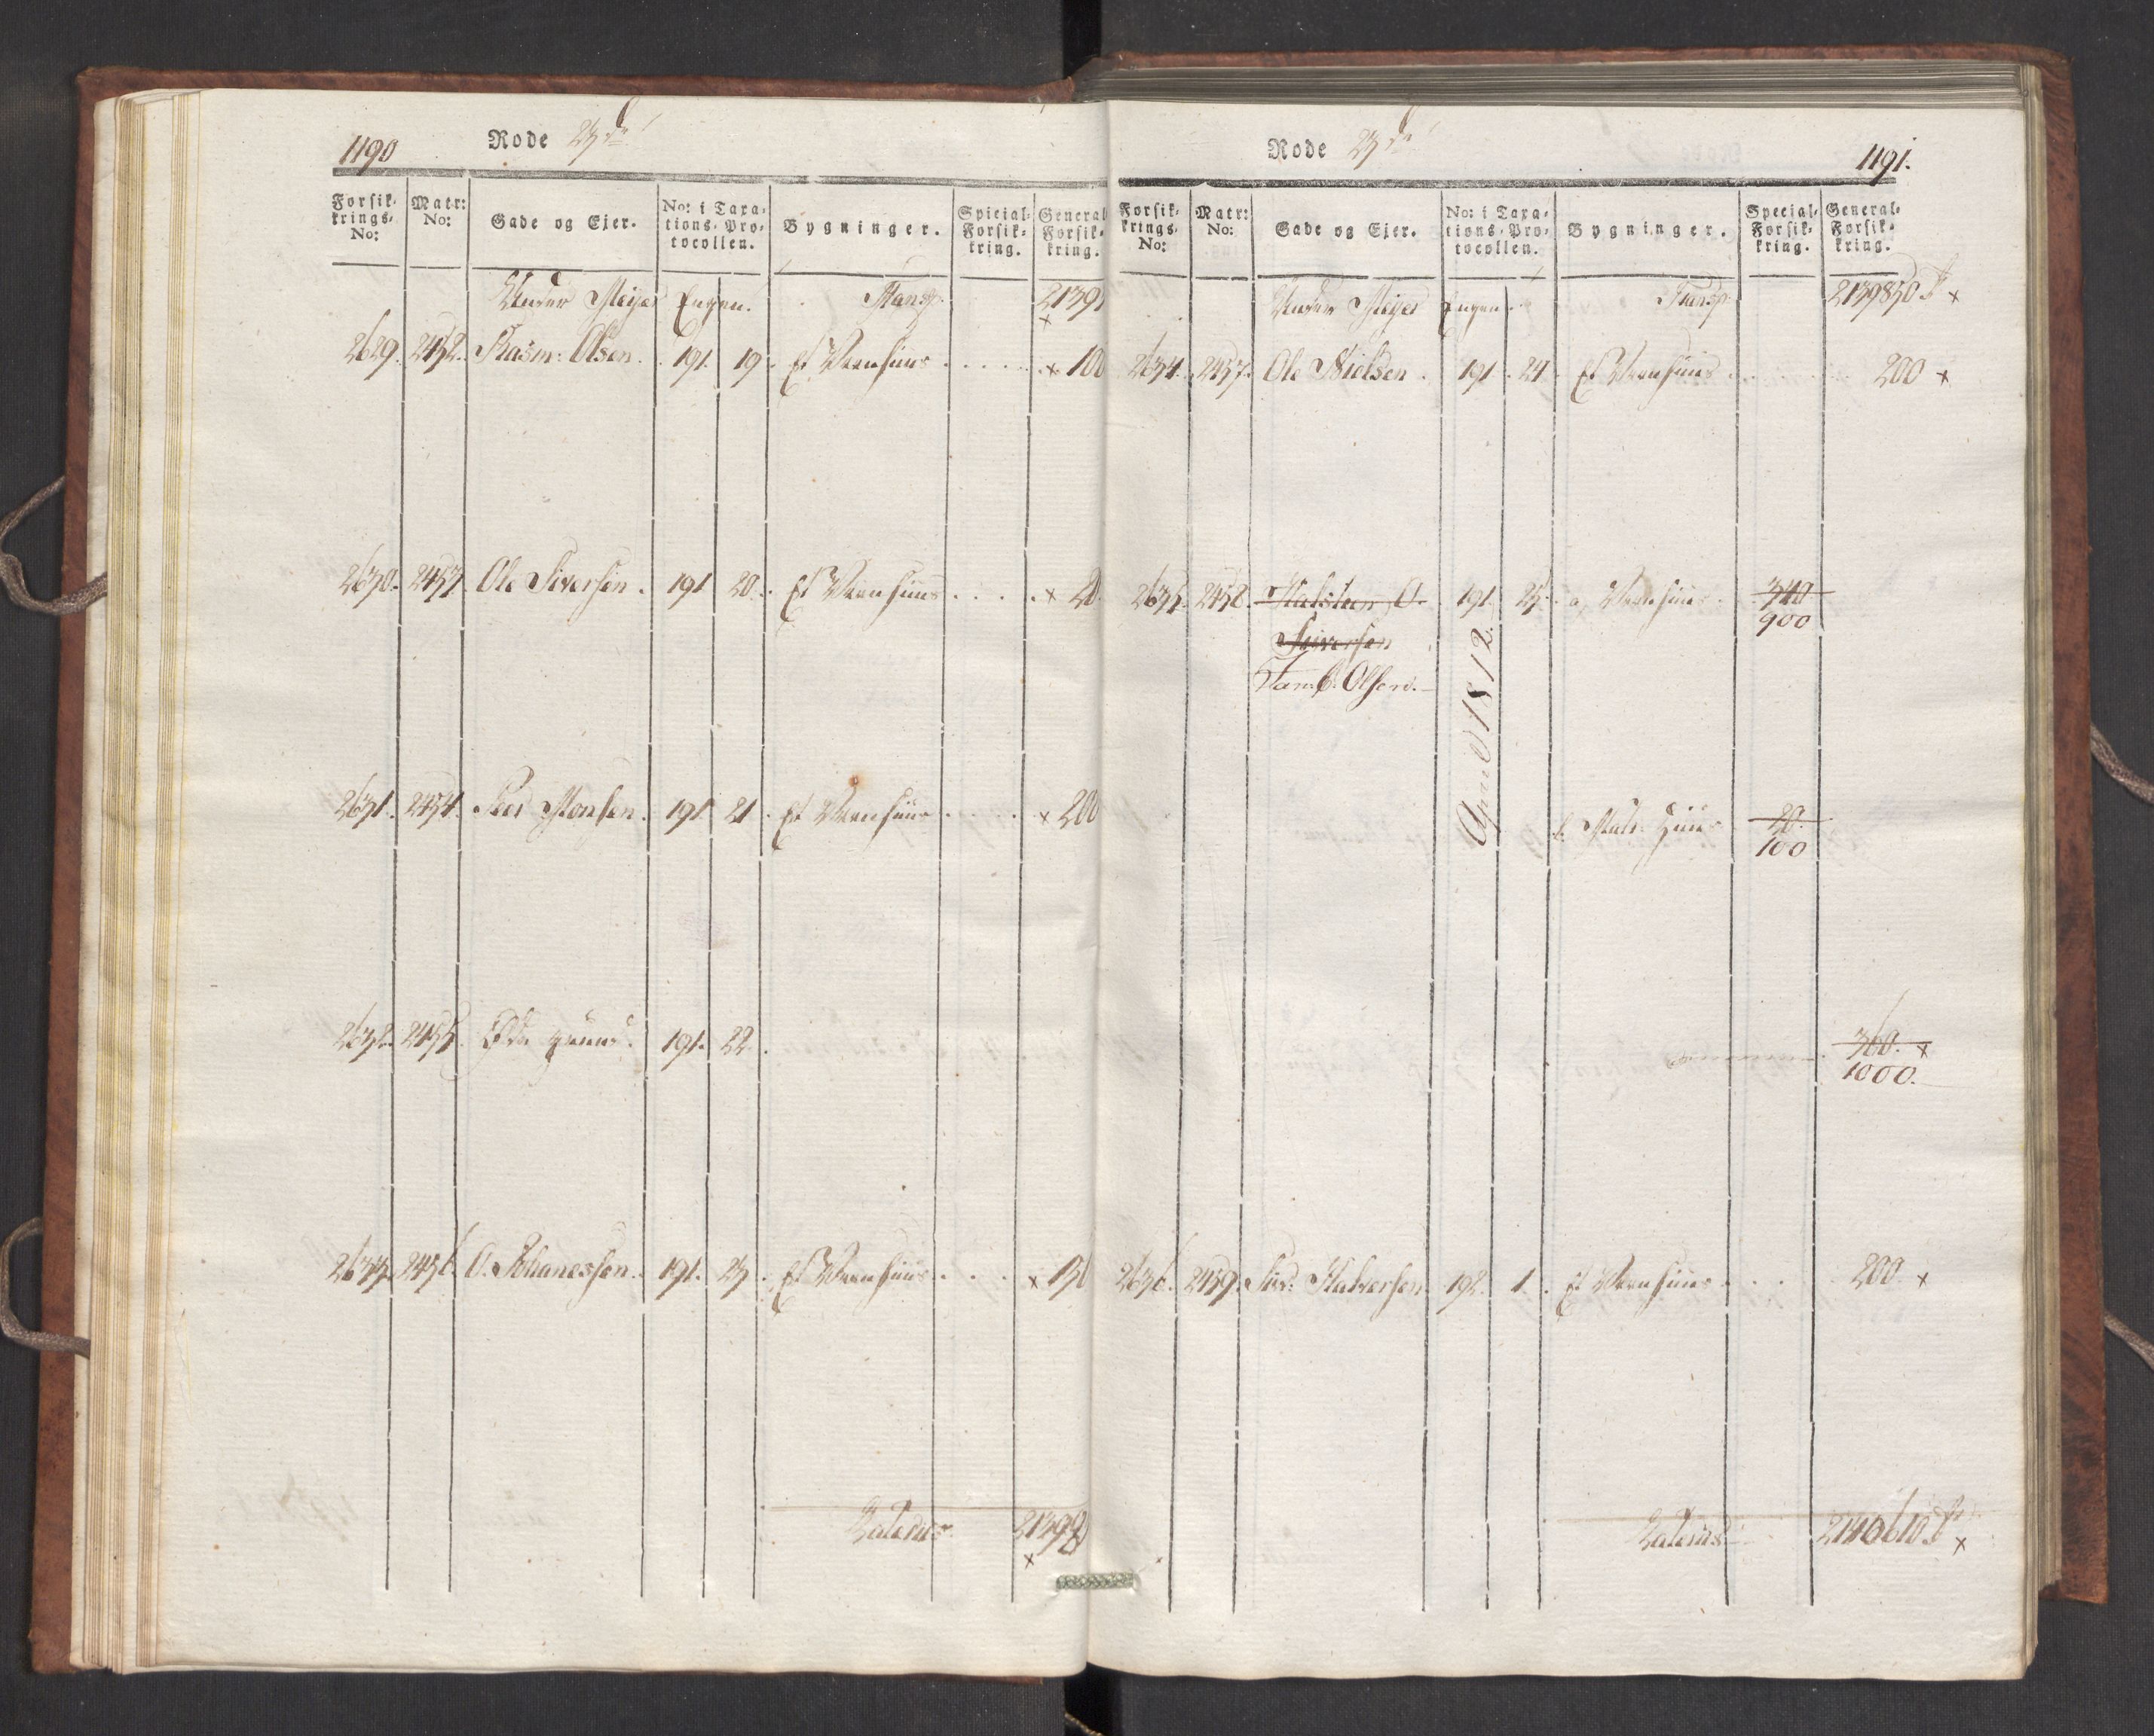 1190
Rode 23de
Forsik- krings- No: Matr: No: Gade og Ejer. No: i Taxa- tions-Pro- tocollen. Bygninger. Special- Forsik- kring. General Forsik- kring.
Under Meyer Engen. Transp. 2139
2629. 2452. Rasm: Olsen. 191. 19. Et Vaanhuus x 100
2630. 2453. Ole Siversen. 191 20. Et Vaanhuus x 20
2631. 2454. Peer Monsen. 191 21. Et Vaanhuus x 200
2632. 2455. Øde grund. 191. 22.
2633. 2456. O. Johanessen. 191. 23. Et Vaanhuus x 150
Lateris 21398
x
Rode 23de
1191.
Forsik- krings- No: Matr: No: Gade og Ejer. No: i Taxa- tions-Pro- tocollen. Bygninger. Special- Forsik- kring. General- Forsik- kring.
Under Meyer Engen. Transp. 2139850 x
2634. 2457. Ole Nielsen. 191. 24. Et Vaanhuus 200 x
2635. 2458. Halsteen O. 191. 25. a, Vaanhuus. 340
900
Siversen
Olsen.
April 1812.
b. Huus 20.
100
360. x
1000.
2636. 2459. Siv: Halversen. 192. 1. Et Vaanhuus 200 x
Lateris 2140610 x